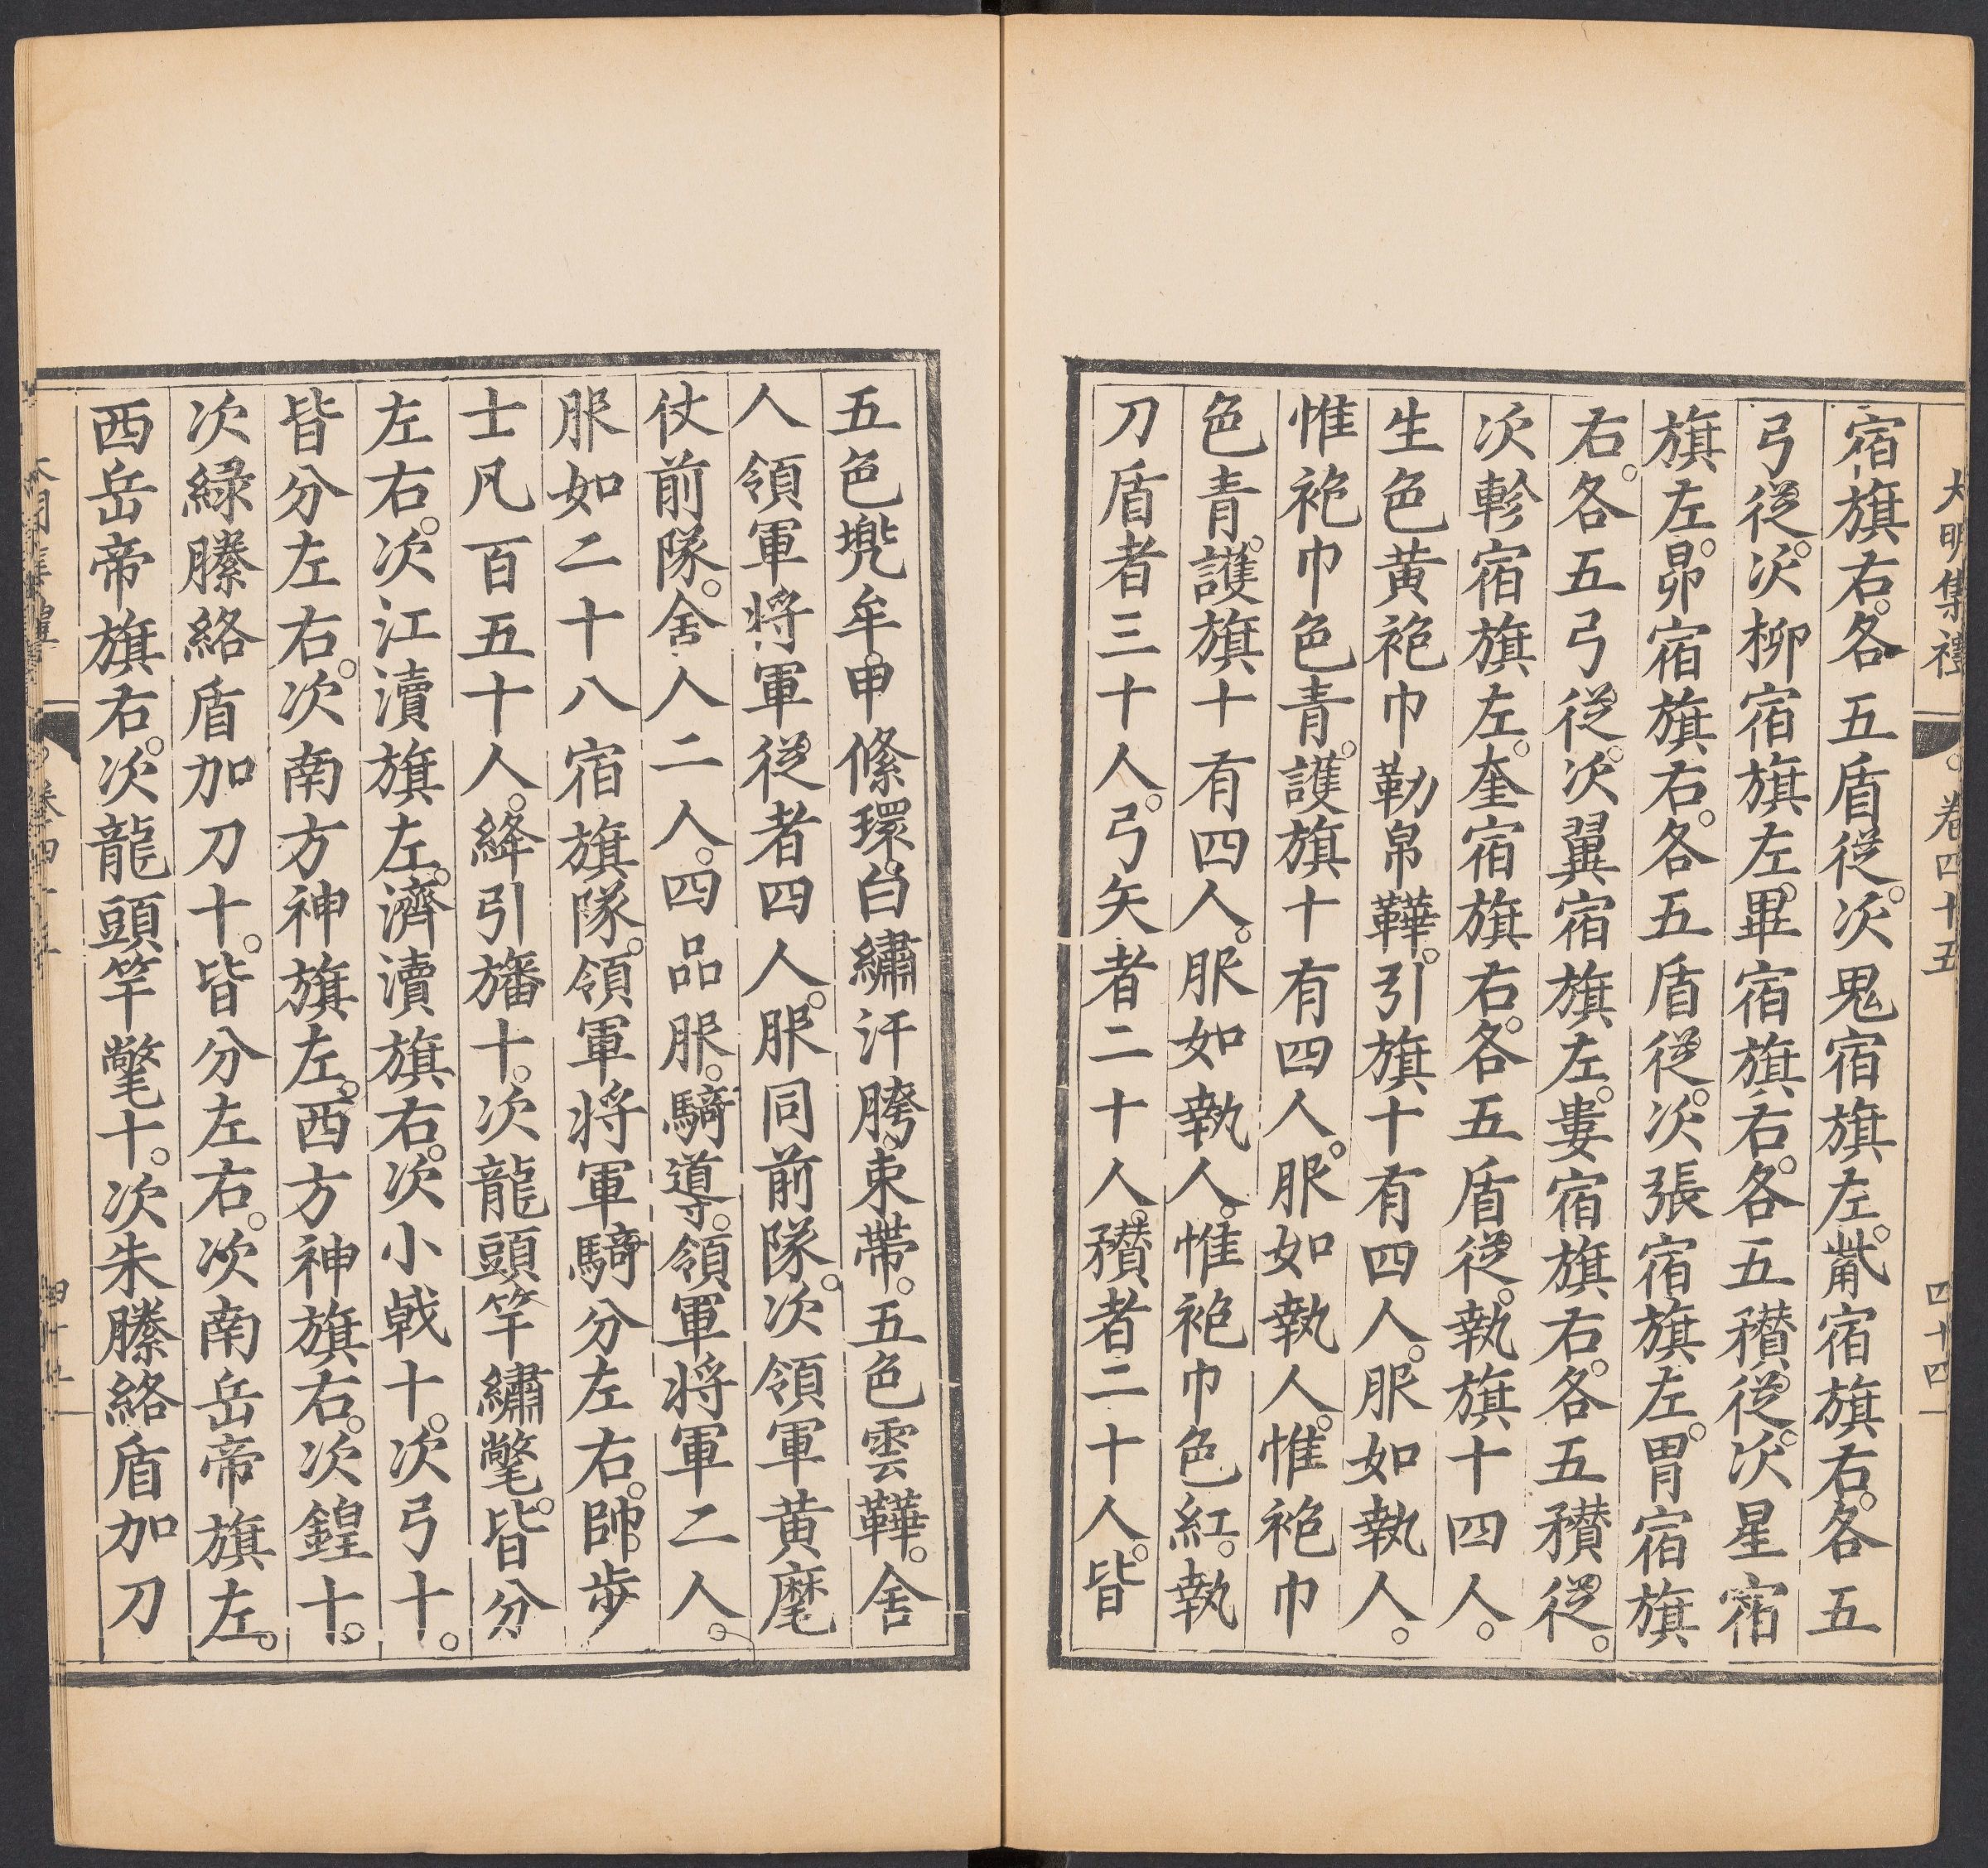 大明集禮
卷四十五
四十四
宿旗右。各五盾從。次鬼宿旗左。觜宿旗右。各五
弓從。次柳宿旗左。畢宿旗右。各五穳從。次星宿
旗左。昴宿旗右。各五盾從。次張宿旗左。胃宿旗
右。各五弓從。次翼宿旗左。婁宿旗右。各五穳從。
次軫宿旗左。奎宿旗右。各五盾從。執旗十四人。
生色黄袍巾勒帛鞾。引旗十有四人。服如執人。
惟袍巾色青。護旗十有四人。服如執人。惟袍巾
色青。護旗十有四人。服如執人。惟袍巾色紅。執
刀盾者三十人。弓矢者二十人。穳者二十人。皆
五色兠牟。甲絛環。白繡汗胯。束帶。五色雲鞾。舍
人領軍将軍從者四人。服同前隊。次領軍黄麾
仗前隊。舍人二人。四品服。騎導。領軍将軍二人。
服如二十八宿旗隊。領軍将軍騎分左右。帥步
士凡百五十人。絳引旛十。次龍頭竿繡氅。皆分
左右。次江瀆旗左。濟瀆旗右。次小戟十。次弓十。
皆分左右。次南方神旗左。西方神旗右。次鍠十。
次緑縢絡盾加刀十。皆分左右。次南岳帝旗左。
西岳帝旗右。次龍頭竿氅十。次朱縢絡盾加刀